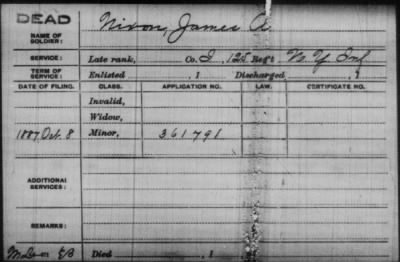 DEAD
Nixon, James A
NAME OF SOLDIER:
SERVICE: Late rank, Co. I, 125 Reg't N.Y. Inf
TERM OF SERVICE: Enlisted , 1 Discharged , 1
DATE OF FILING. CLASS. APPLICATION NO. LAW. CERTIFICATE NO.
Invalid,
Widow,
1887, Oct. 8 Minor, 361791
ADDITIONAL SERVICES:
REMARKS:
Died , 1